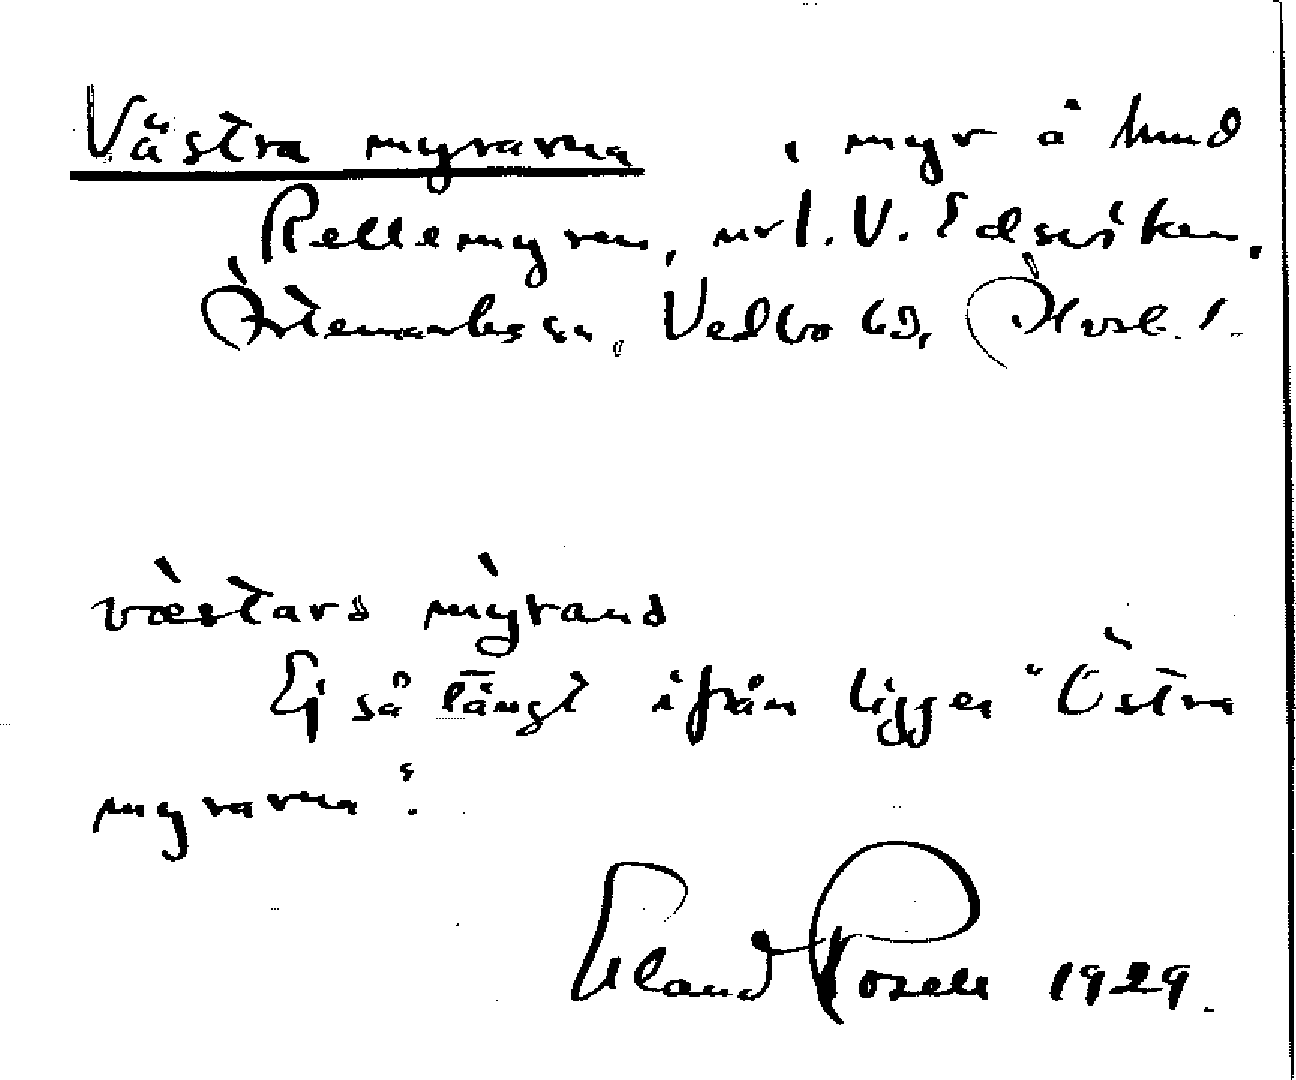 Västra myrarna, myr å hmd
Pellemyren, nrl. V. Edsviken,
Ärtemarks sn, Vedbo hd, Älvsb. l.
västars myrand
Ej så långt ifrån ligger "Östra
myrarna".
Erland Rosell 1929.